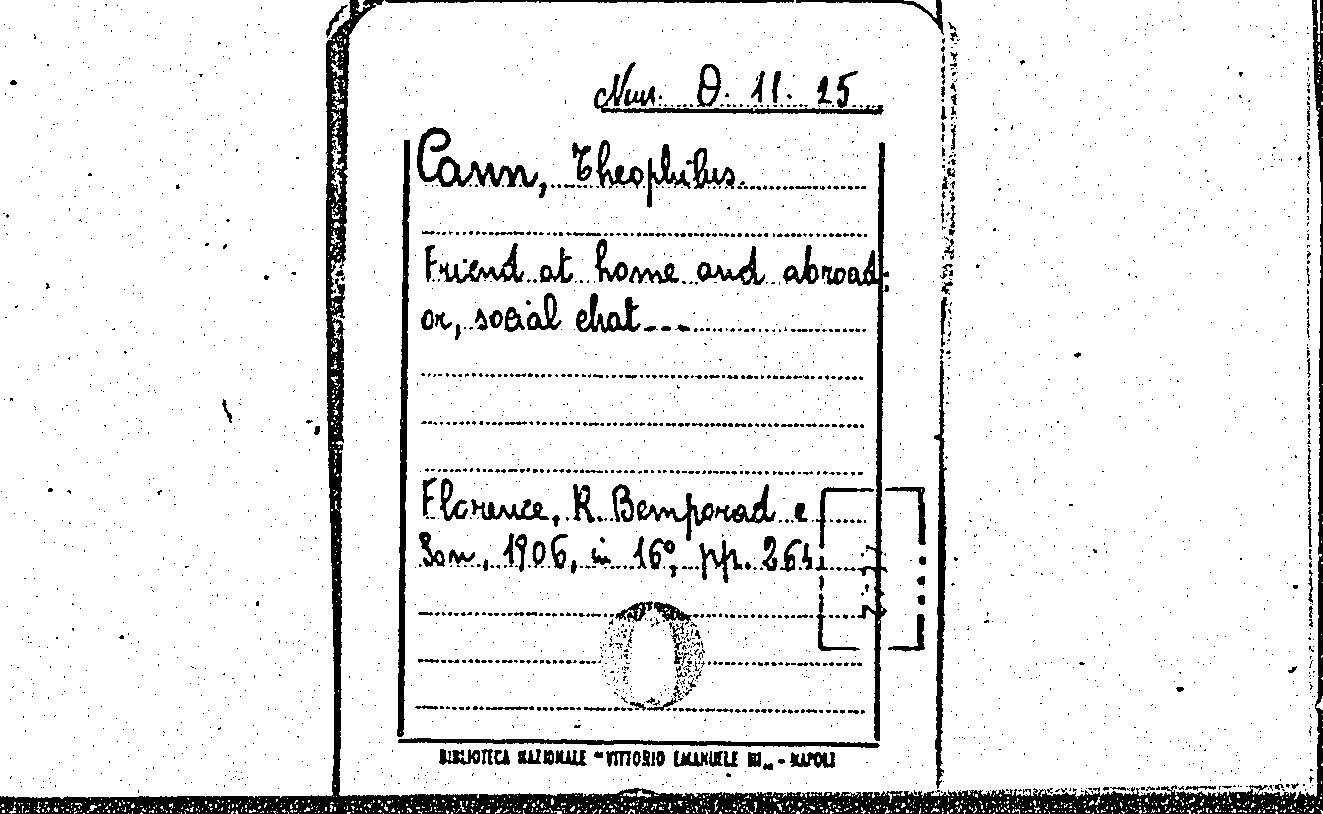 Nun. θ. 11. 25
Cann, Theophilus.
Friend at home and abroad;
or, social chat---
Florence, R. Bemporad e
Son, 1906, in 16°, pp. 264.
BIBLIOTECA NAZIONALE "VITTORIO EMANUELE III„ - NAPOLI